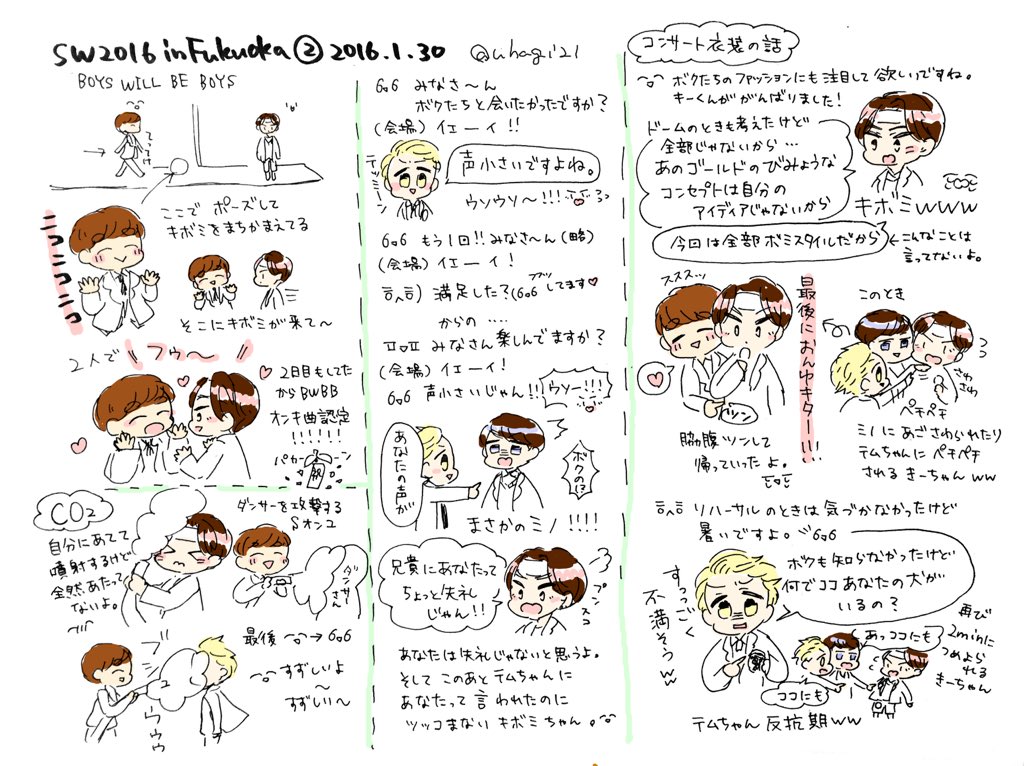 SW2016 in Fukuoka ② 2016.1.30
@uhagi121
BOYS WILL BE BOYS
ここで ポーズして
キボミをまちかまえてる
ニコニコニコ
そこにキボミが来て〜
2人で
フゥ〜
2日目もしてた
からBWBB
オンキ曲認定
!!!!!!
パカーン
祝
CO2
自分にあてて
噴射するけど
全然あたって
ないよ。
ダンサーを攻撃する
Sオンユ
ダンサーさん
最後
すずしいよ
〜
すずしい〜
みなさ〜ん
ボクたちと会いたかったですか?
(会場) イエーイ!!
声小さいですよね。
ウソウソ〜!!!
もう1回!! みなさ〜ん (略)
(会場) イエーイ!
満足した?
してます
からの ‥‥
みなさん 楽しんでますか?
(会場) イエーイ!
声小さいじゃん!!
ウソー!!!
あなたの声が
ボクの!?
まさかのミノ!!!!
兄貴にあなたって
ちょっと失礼
じゃん!!
プンスコ
あなたは失礼じゃないと思うよ。
そして このあと テムちゃんに
あなたって 言われたのに
ツッコまない キボミちゃん。
コンサート衣装の話
ボクたちのファッションにも注目して欲しいですね。
キーくんががんばりました!
ドームのときも考えたけど
全部じゃないから…
あのゴールドのびみょうな
コンセプトは自分の
アイディアじゃないから
キボミwww
今回は全部ボミスタイルだから
←こんなことは
言ってないよ。
ススス…
ツン
脇腹ツンして
帰っていったよ。
最後におんゆキター!!!
このとき
さわさわ
ペチペチ
ミノにあごさわられたり
テムちゃんにペチペチ
されるきーちゃんww
リハーサルのときは気づかなかったけど
暑いですよ。
ボクも知らなかったけど
何でココあなたの犬が
いるの?
すっっごく
不満そうww
あっココにも
ココにも
再び
2minに
つめよら
れる
きーちゃん
テムちゃん反抗期ww